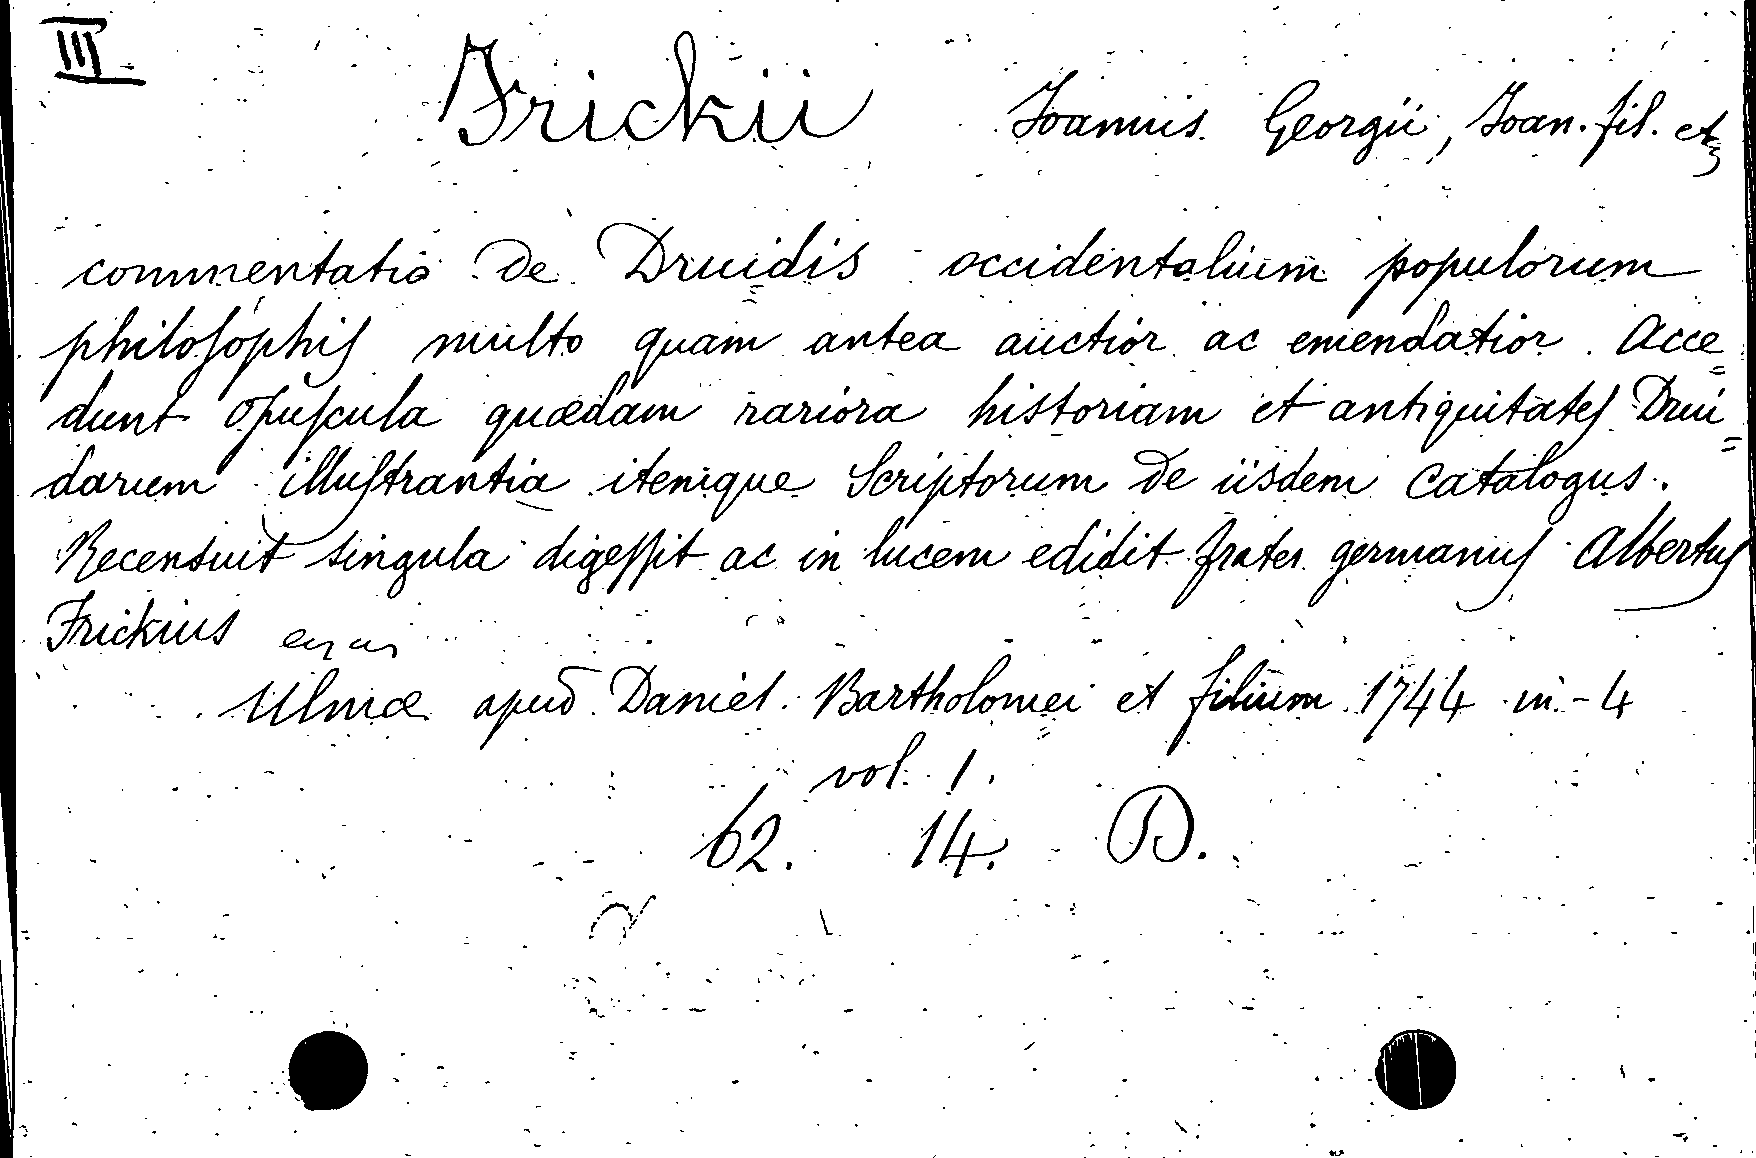 III
Frickii Joannis Georgii, Joan. fil. etz
commentatio de Druidis occidentalium populorum
philoſophiſ multo quam antea auctior ac emendatior. Acce=
dunt opuſcula quædam rariora historiam et antiquitateſ Drui=
darum illuſtrantia itemque Scriptorum de iisdem catalogus.
Recensuit singula digeſſit ac in lucem edidit frater germanuſ Albertuſ
Frickius
Ulmæ apud Daniel. Bartholomei et filium 1744 in-4
vol. 1.
62. 14. D.